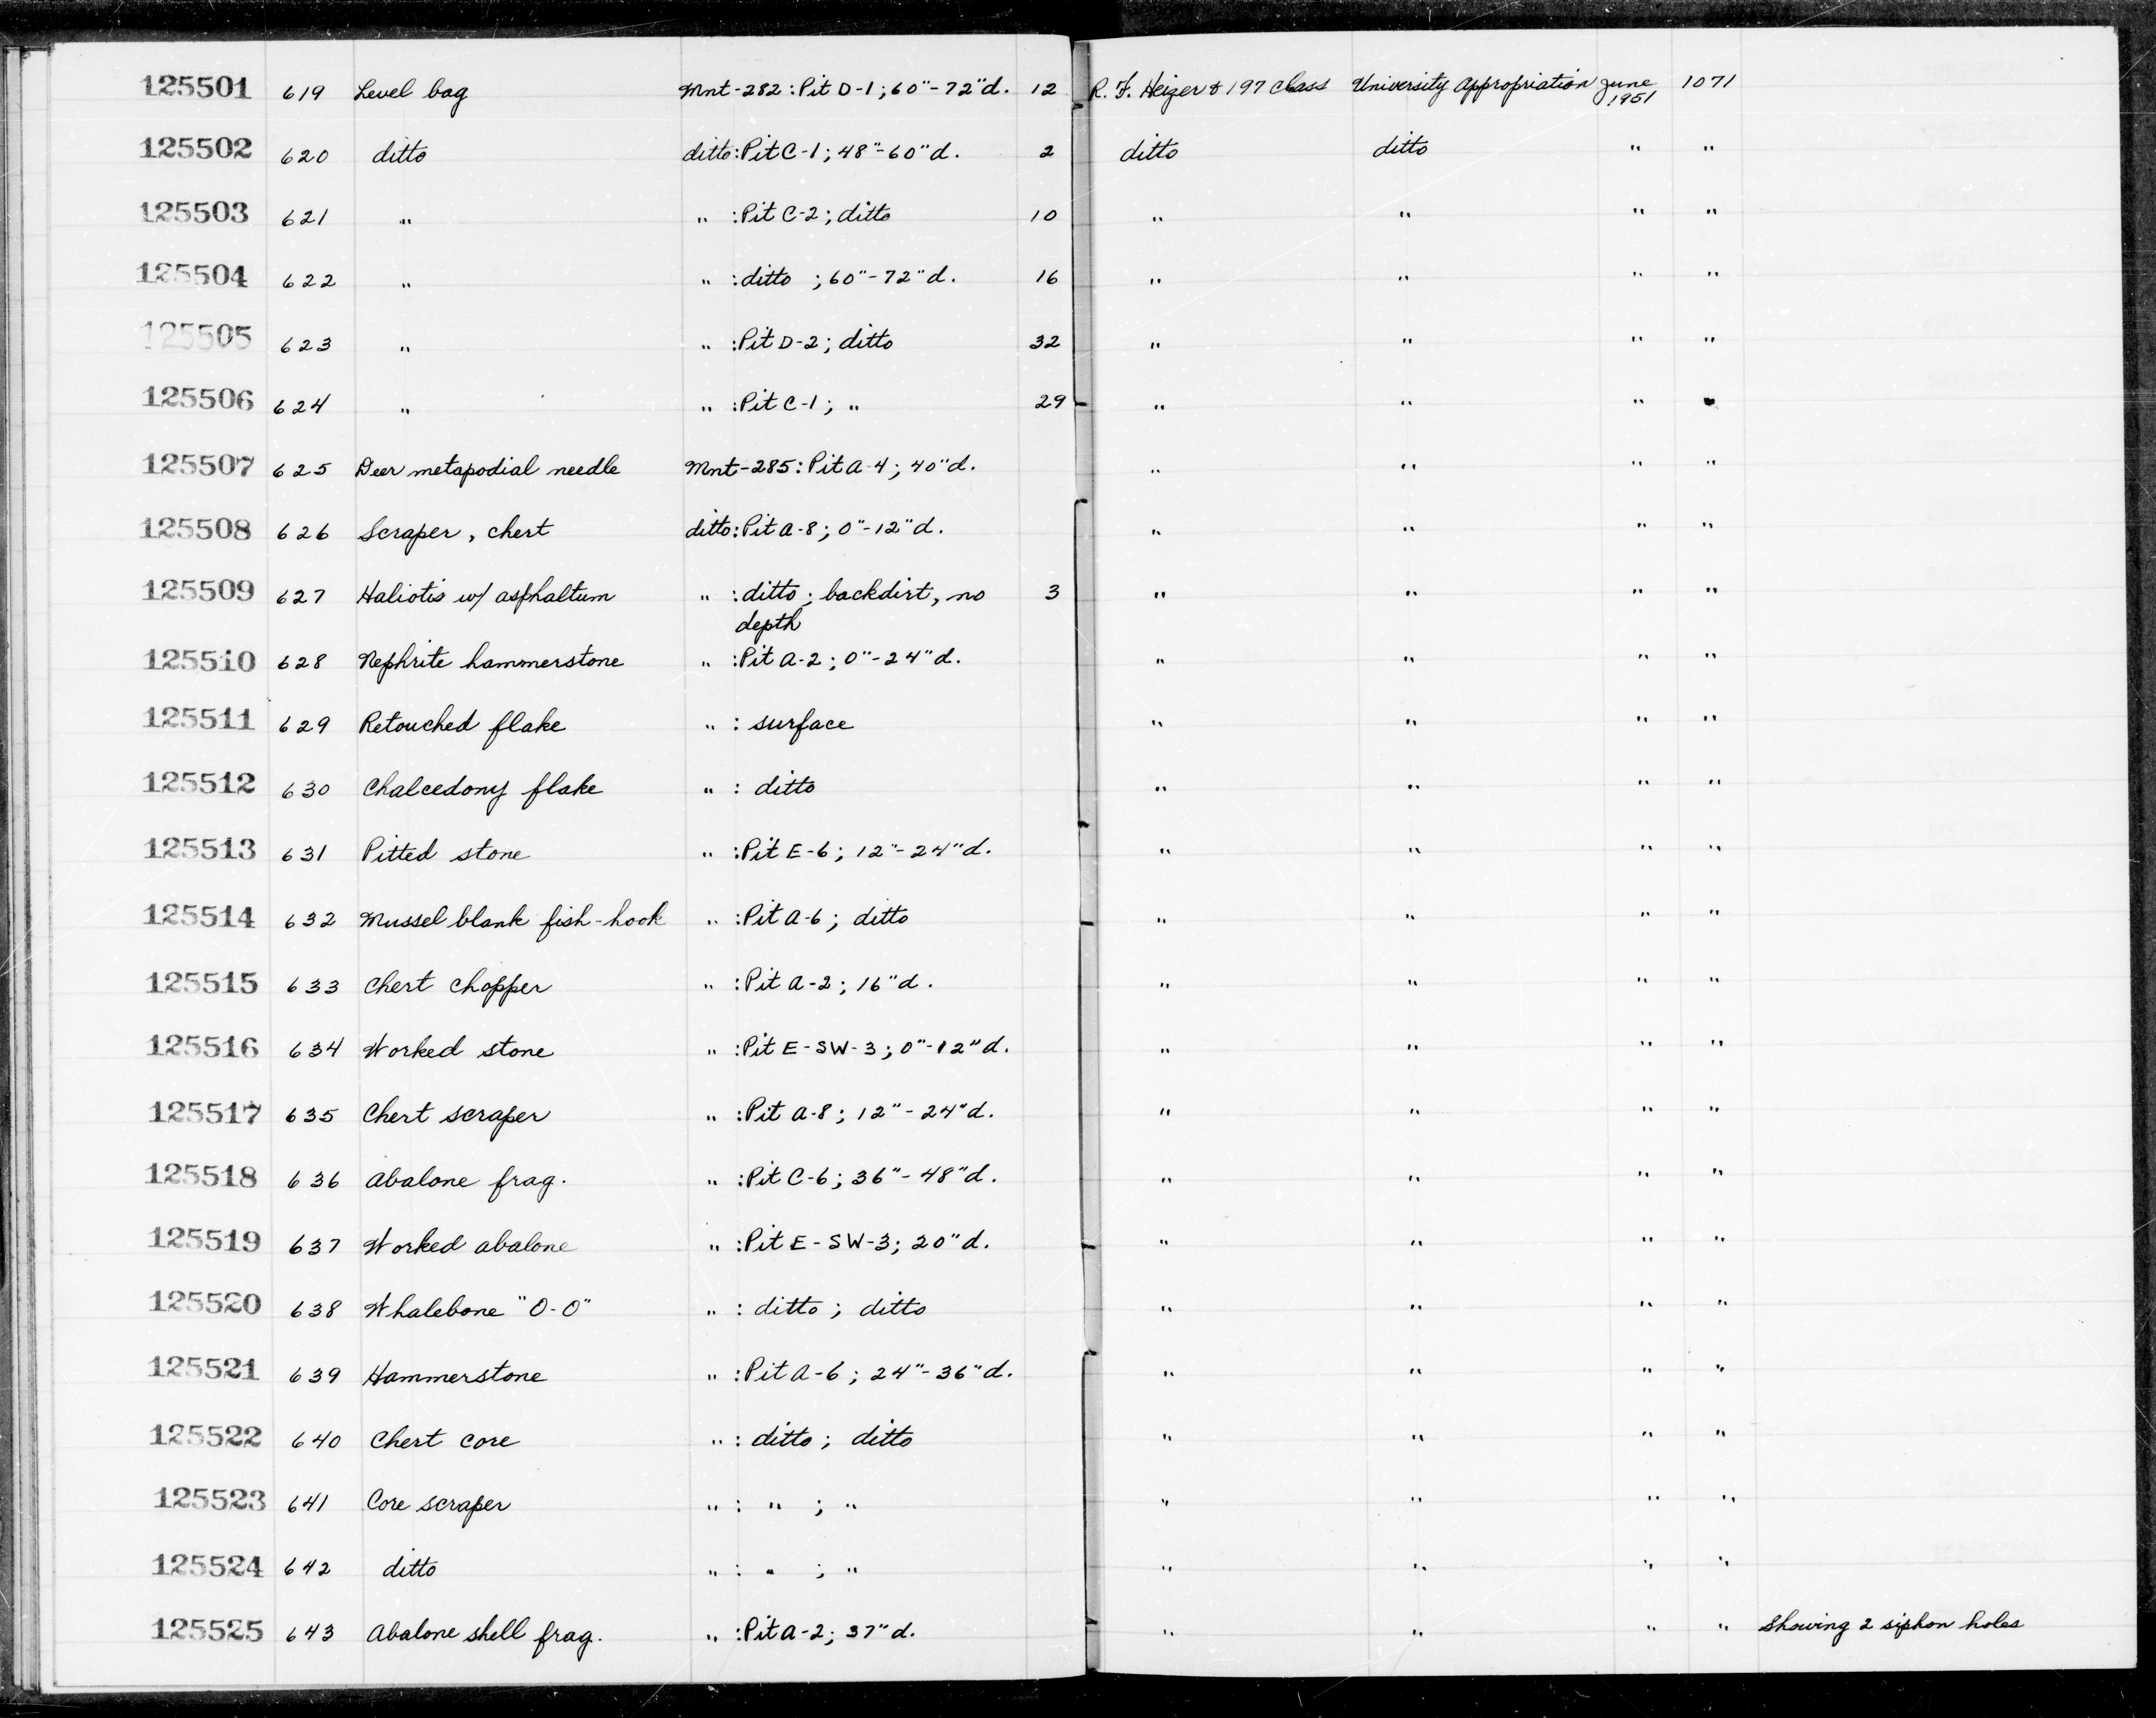 125501 619 Level bag Mnt-282: Pit D-1; 60"-72"d. 12 R. F. Heizer & 197 Class University Appropriation June 1951 1071
125502 620 ditto ditto: Pit C-1; 48"-60"d. 2 ditto ditto " "
125503 621 " " : Pit C-2; ditto 10 " " " "
125504 622 " " : ditto ; 60"-72"d. 16 " " " "
125505 623 " " : Pit D-2; ditto 32 " " " "
125506 624 " " : Pit C-1; " 29 " " " "
125507 625 Deer metapodial needle Mnt-285: Pit A-4; 40"d. " " " "
125508 626 Scraper, chert ditto: Pit A-8; 0"-12"d. " " " "
125509 627 Haliotis w/ asphaltum " : ditto; backdirt, no 3 " " " "
depth
125510 628 Nephrite hammerstone " : Pit A-2; 0"-24"d. " " " "
125511 629 Retouched flake " : surface " " " "
125512 630 Chalcedony flake " : ditto " " " "
125513 631 Pitted stone " : Pit E-6; 12"-24"d. " " " "
125514 632 Mussel blank fish-hook " : Pit A-6; ditto " " " "
125515 633 Chert chopper " : Pit A-2; 16"d. " " " "
125516 634 Worked stone " : Pit E-SW-3; 0"-12"d. " " " "
125517 635 Chert scraper " : Pit A-8; 12"-24"d. " " " "
125518 636 Abalone frag. " : Pit C-6; 36"-48"d. " " " "
125519 637 Worked abalone " : Pit E-SW-3; 20"d. " " " "
125520 638 Whalebone "O-O" " : ditto; ditto " " " "
125521 639 Hammerstone " : Pit A-6; 24"-36"d. " " " "
125522 640 Chert core " : ditto; ditto " " " "
125523 641 Core scraper " : " ; " " " " "
125524 642 ditto " : " ; " " " " "
125525 643 Abalone shell frag. " : Pit A-2; 37"d. " " " " Showing 2 siphon holes